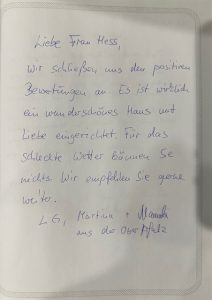 Liebe Frau Hess,
wir schließen uns den positiven
Bewertungen an. Es ist wirklich
ein wunderschönes Haus mit
Liebe eingerichtet. Für das
schlechte Wetter können Sie
nichts. Wir empfehlen Sie gerne
weiter.
LG, Martina +
aus der Oberpfalz